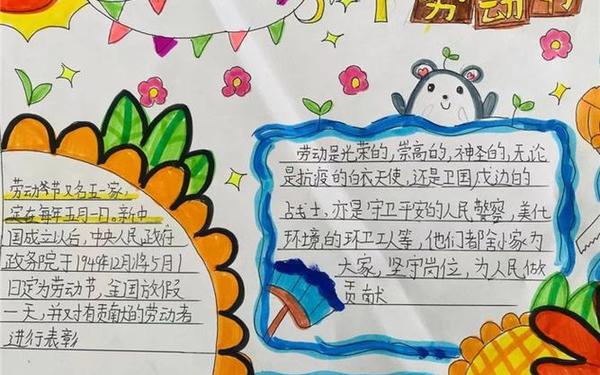 5·1
劳动节
劳动节又名五一
定在每年五月一日。新中
国成立以后,中央人民政府
政务院于1949年12月将5月1
日定为劳动节,全国放假
一天,并对有贡献的劳动者
进行表彰
劳动是光荣的,崇高的,神圣的,无论
是抗疫的白衣天使,还是卫国戍边的
战士,亦是守卫平安的人民警察,美化
环境的环卫工人等,他们都舍小家为
大家,坚守岗位,为人民做
贡献